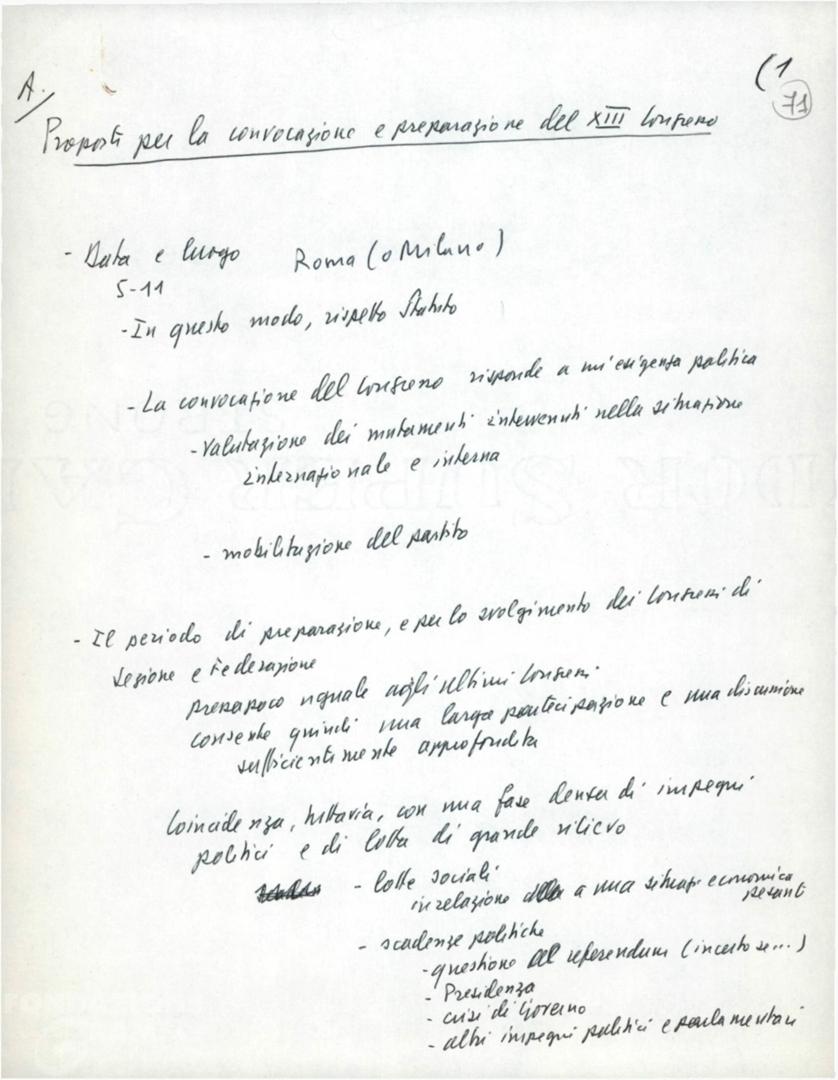 A.
(1
71
Proposte per la convocazione e preparazione del XIII Congresso
- Data e luogo Roma (o Milano)
5-11
- In questo modo, rispetto Statuto
- La convocazione del Congresso risponde a un'esigenza politica
- Valutazione dei mutamenti intervenuti nella situazione
internazionale e interna
- mobilitazione del partito
- Il periodo di preparazione, e per lo svolgimento dei Congressi di
Sezione e Federazione
presapoco uguale agli ultimi Congressi.
consente quindi una larga partecipazione e una discussione
sufficientemente approfondita
Coincidenza, tuttavia, con una fase densa di impegni
politici e di lotta di grande rilievo
- lotte sociali
in relazione a una situaz economica
pesante
- scadenze politiche
- questione del referendum (incerto se...)
- Presidenza
- crisi di Governo
- altri impegni politici e parlamentari